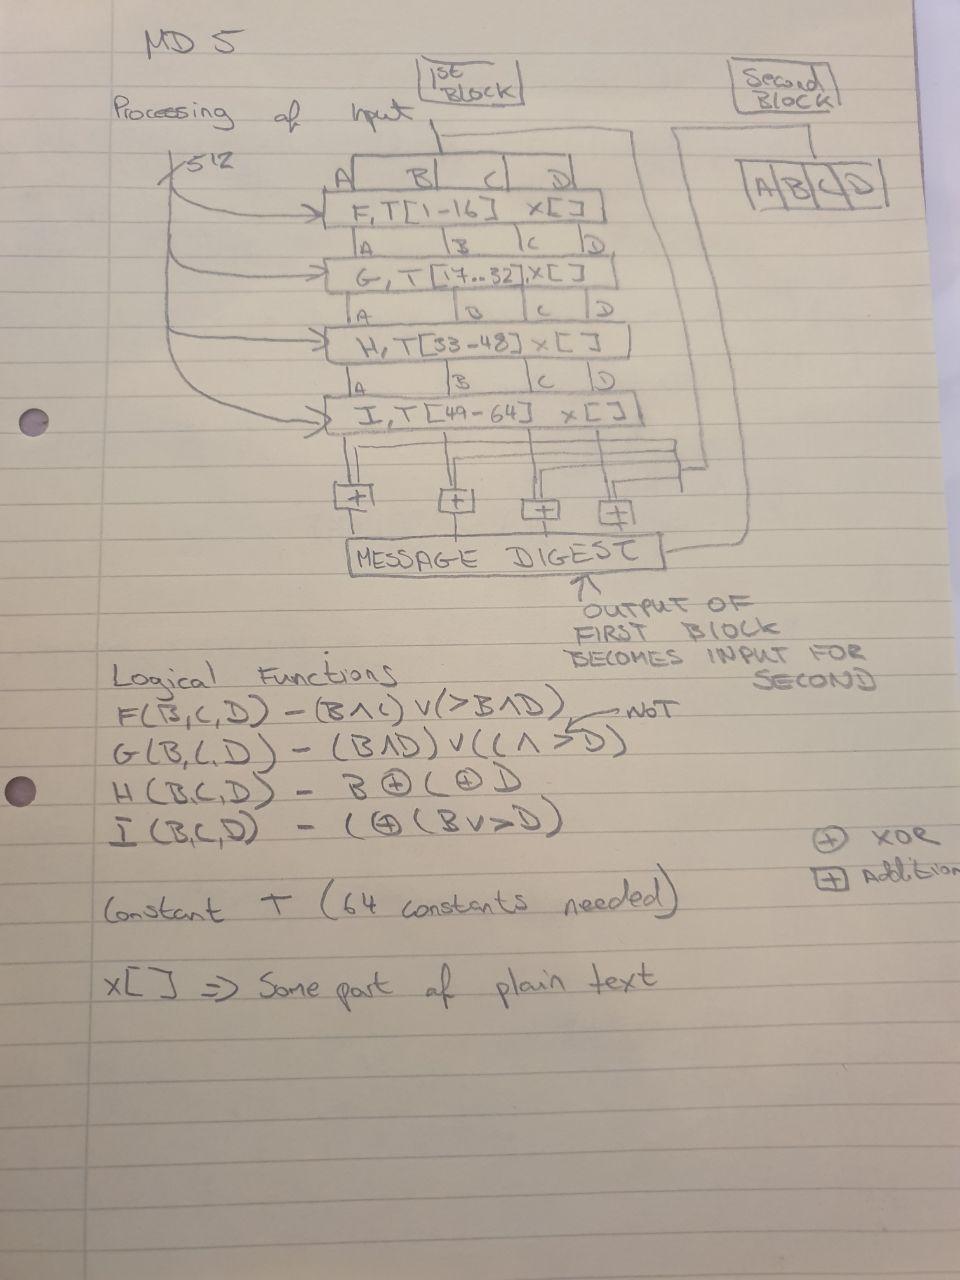 MD 5
1st BLOCK
Second BLOCK
Processing of input
512
A B C D
A B C D
F, T[1-16] x[]
A B C D
G, T[17..32], x[]
A B C D
H, T[33-48] x[]
A B C D
I, T[49-64] x[]
+ + + +
MESSAGE DIGEST
OUTPUT OF
FIRST BLOCK
BECOMES INPUT FOR
SECOND
Logical Functions
F(B,C,D) - (B∧C) ∨ (>B∧D)
NOT
G(B,C,D) - (B∧D) ∨ (C ∧ >D)
H(B,C,D) - B ⊕ C ⊕ D
I (B,C,D) - C ⊕ (B∨>D)
⊕ XOR
⊞ Addition
Constant T (64 constants needed)
x[] => Some part of plain text